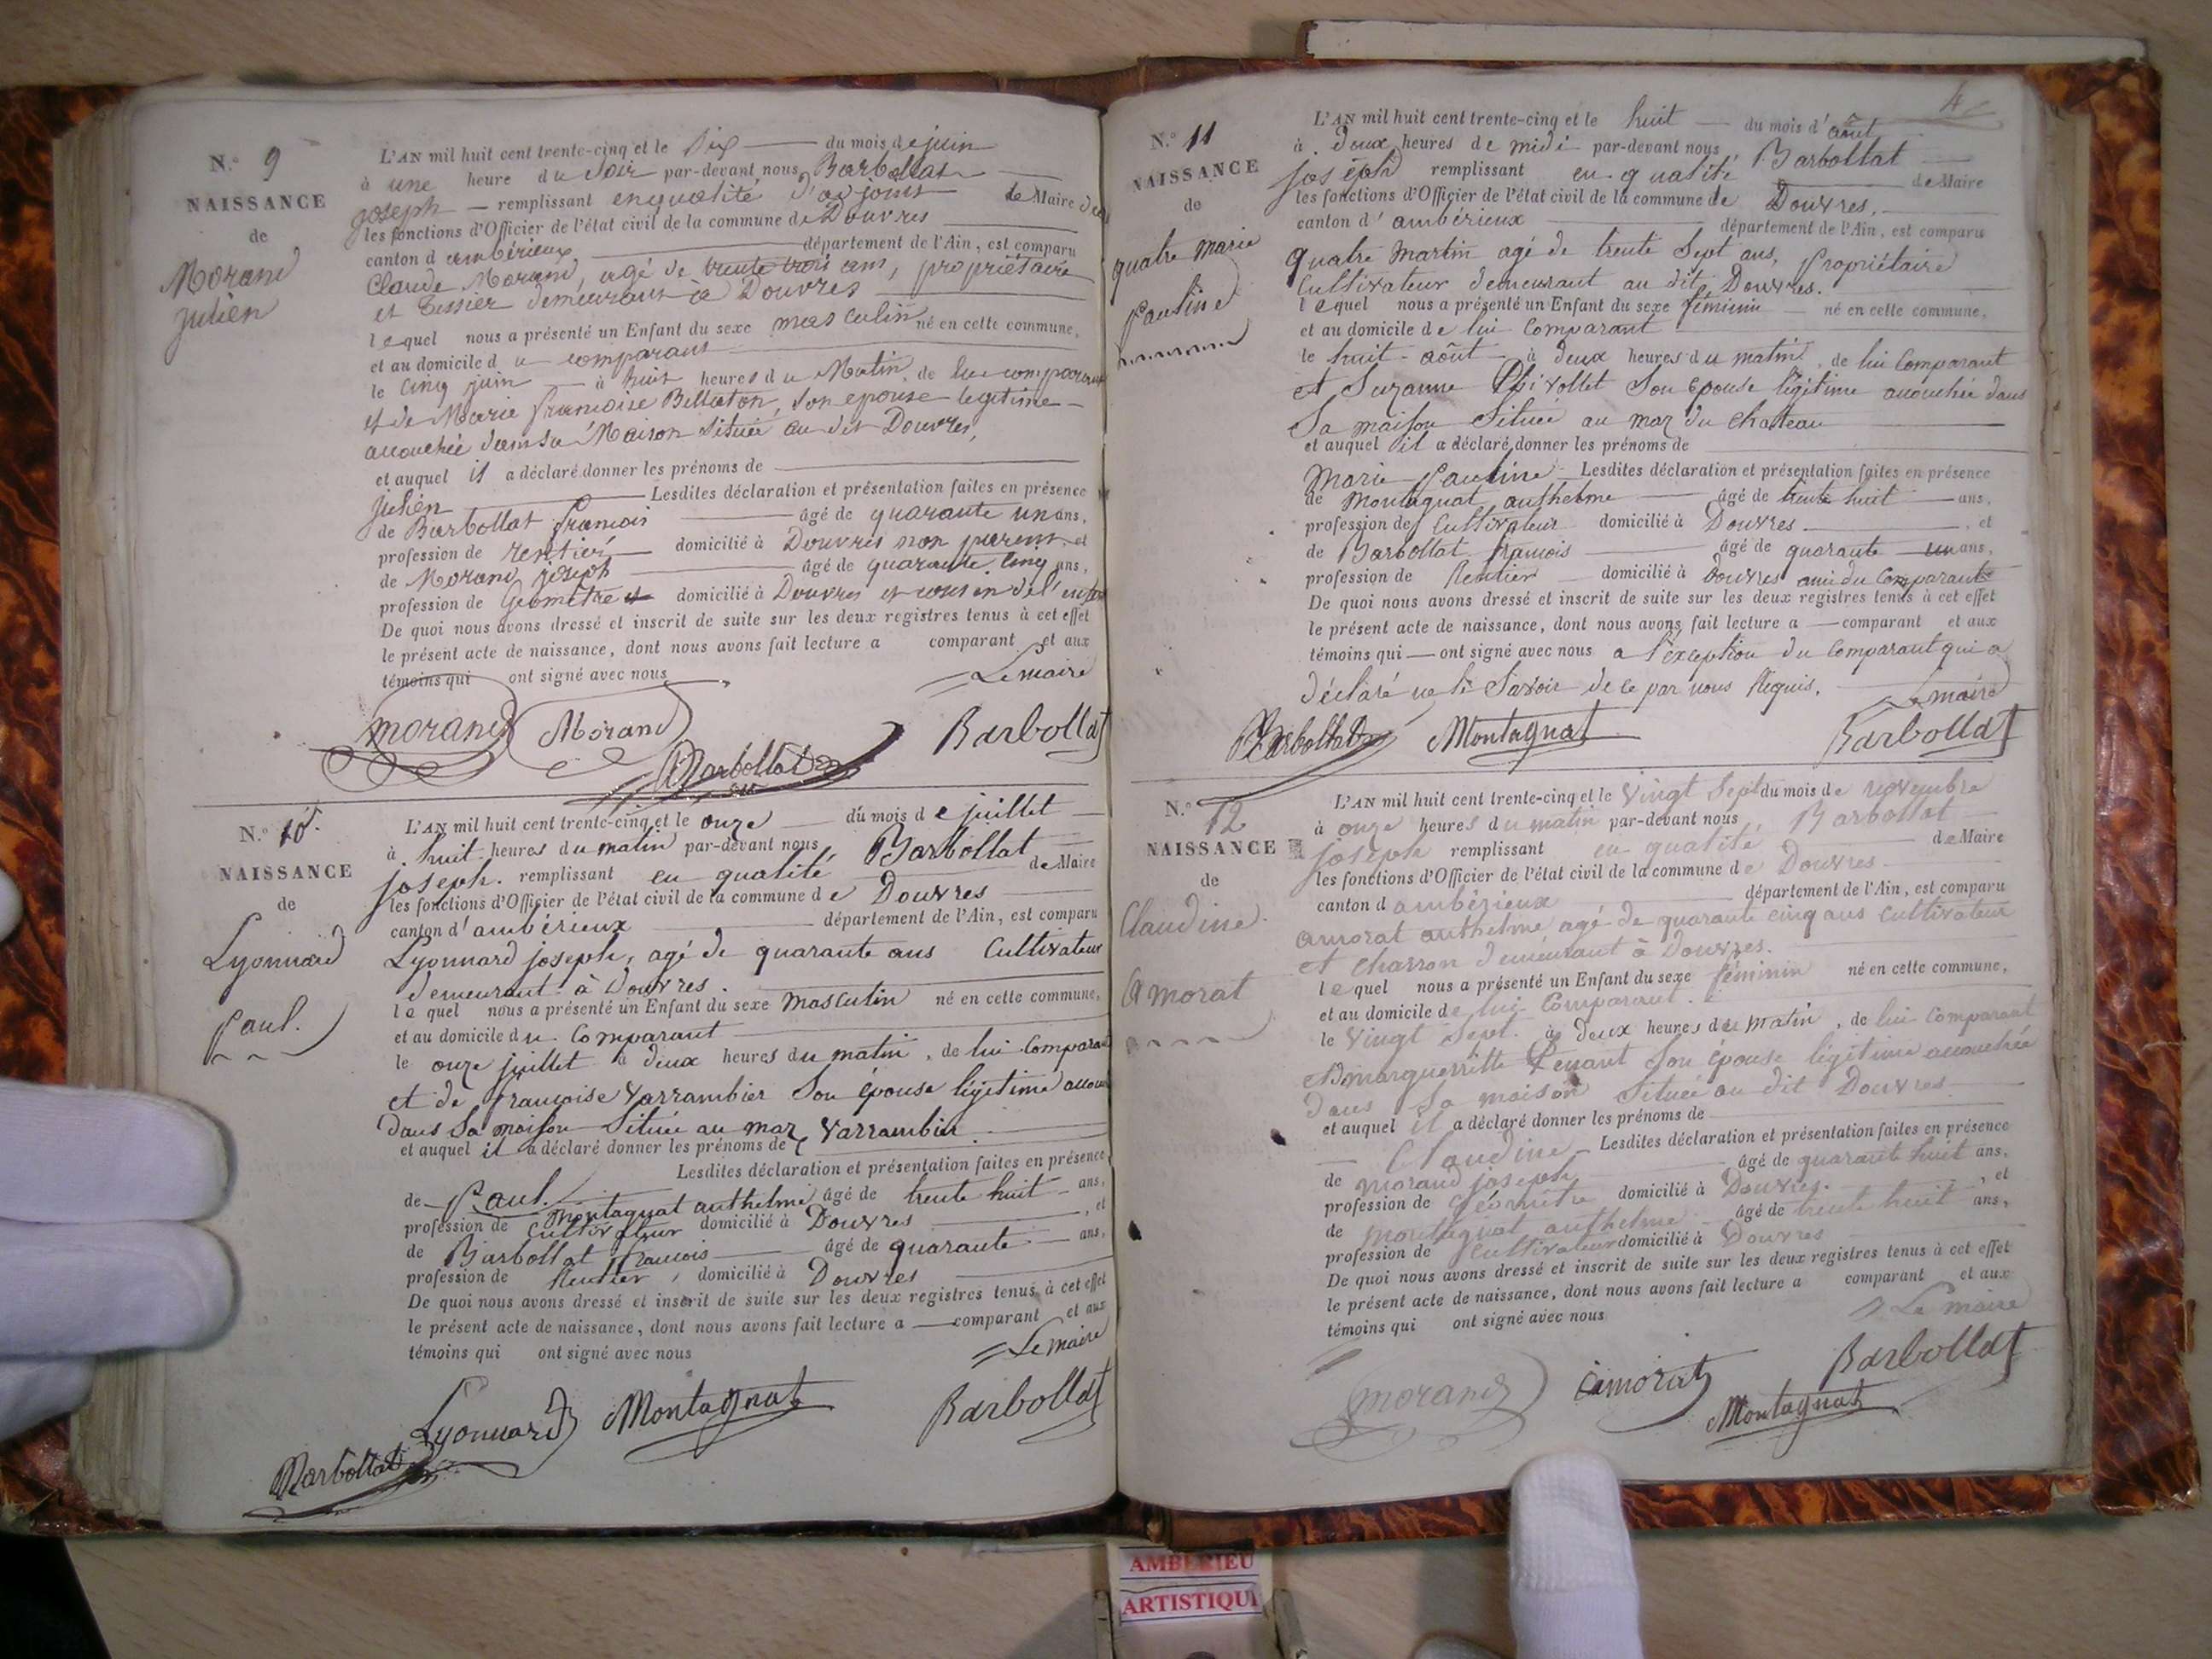 N.° 9
NAISSANCE
de
Morand
Julien
L'AN mil huit cent trente-cinq et le Six du mois de juin
à une heure du Soir par-devant nous Barbollat
joseph remplissant en qualité d'adjoint de Maire
les fonctions d'Officier de l'état civil de la commune de Douvres
canton d'ambérieux département de l'Ain, est comparu
Claude Morand, agé de trente trois ans, propriétaire
et Tissier demeurant à Douvres
lequel nous a présenté un Enfant du sexe masculin né en cette commune,
et au domicile du comparant
le Cinq juin à huit heures du Matin, de lui comparant
et de Marie françoise Bellaton, son epouse legitime
acouchée dans sa Maison Située au dit Douvres,
et auquel il a déclaré donner les prénoms de
Julien Lesdites déclaration et présentation faites en présence
de Barbollat francois âgé de quarante un ans,
profession de rentier domicilié à Douvres non parent et
de Morand joseph âgé de quarante Cinq ans,
profession de Géomètre domicilié à Douvres et cousin de l'enfant
De quoi nous avons dressé et inscrit de suite sur les deux registres tenus à cet effet
le présent acte de naissance, dont nous avons fait lecture a comparant et aux
témoins qui ont signé avec nous
Le maire
morand Morand Barbollat Barbollat
N.° 10.
NAISSANCE
de
Lyonnard
Paul.
L'AN mil huit cent trente-cinq et le onze du mois de juillet
à huit heures du matin par-devant nous Barbollat
joseph. remplissant en qualité de Maire
les fonctions d'Officier de l'état civil de la commune de Douvres
canton d'ambérieux département de l'Ain, est comparu
Lyonnard joseph, agé de quarante ans Cultivateur
demeurant à Douvres.
lequel nous a présenté un Enfant du sexe masculin né en cette commune,
et au domicile du Comparant
le onze juillet à deux heures du matin, de lui Comparant
et de françoise Varrambier Son épouse légitime
dans Sa maison Située au maz Varrambier
et auquel il a déclaré donner les prénoms de
Lesdites déclaration et présentation faites en présence
de Paul. Montagnat anthelme âgé de trente huit ans,
profession de Cultivateur domicilié à Douvres, et
de Barbollat francois âgé de quarante ans,
profession de Rentier, domicilié à Douvres
De quoi nous avons dressé et inscrit de suite sur les deux registres tenus à cet effet
le présent acte de naissance, dont nous avons fait lecture a comparant et aux
témoins qui ont signé avec nous
Le maire
Lyonnard Montagnat Barbollat
Barbollat
4
N.° 11
NAISSANCE
de
quatre marie
Pauline
L'AN mil huit cent trente-cinq et le huit du mois d'août
à deux heures de midi par-devant nous Barbollat
joseph remplissant en qualité de Maire
les fonctions d'Officier de l'état civil de la commune de Douvres.
canton d'ambérieux département de l'Ain, est comparu
quatre Martin agé de trente Sept ans, Propriétaire
Cultivateur demeurant au dit Douvres.
lequel nous a présenté un Enfant du sexe féminin né en cette commune,
et au domicile de lui Comparant
le huit août à deux heures du matin, de lui Comparant
et Suzanne Chivollet Son épouse légitime acouchée dans
Sa maison Située au maz du Chateau
et auquel il a déclaré donner les prénoms de
Marie Pauline Lesdites déclaration et présentation faites en présence
de Montagnat anthelme âgé de trente huit ans,
profession de Cultivateur domicilié à Douvres, et
de Barbollat francois âgé de quarante un ans,
profession de Rentier domicilié à Douvres ami du Comparant
De quoi nous avons dressé et inscrit de suite sur les deux registres tenus à cet effet
le présent acte de naissance, dont nous avons fait lecture a comparant et aux
témoins qui ont signé avec nous a l'exception du Comparant qui a
déclaré ne le Savoir de ce par nous Requis.
Le maire
Barbollat Montagnat Barbollat
N.° 12
NAISSANCE
de
Claudine
amorat
L'AN mil huit cent trente-cinq et le vingt Sept du mois de novembre
à onze heures du matin par-devant nous Barbollat
joseph remplissant en qualité de Maire
les fonctions d'Officier de l'état civil de la commune de Douvres
canton d'ambérieux département de l'Ain, est comparu
amorat anthelme agé de quarante cinq ans Cultivateur
et Charron demeurant à Douvres.
lequel nous a présenté un Enfant du sexe féminin né en cette commune,
et au domicile de lui Comparant.
le vingt Sept. à deux heures du matin, de lui Comparant
et marguerritte Son épouse légitime acouchée
dans Sa maison Située au dit Douvres
et auquel il a déclaré donner les prénoms de
Claudine Lesdites déclaration et présentation faites en présence
de morand joseph âgé de quarante huit ans,
profession de Géomètre domicilié à Douvres. , et
de montagnat anthelme âgé de trente huit ans,
profession de Cultivateur domicilié à Douvres
De quoi nous avons dressé et inscrit de suite sur les deux registres tenus à cet effet
le présent acte de naissance, dont nous avons fait lecture a comparant et aux
témoins qui ont signé avec nous
Le maire
morand amorat Barbollat
Montagnat
AMBERIEU
ARTISTIQU